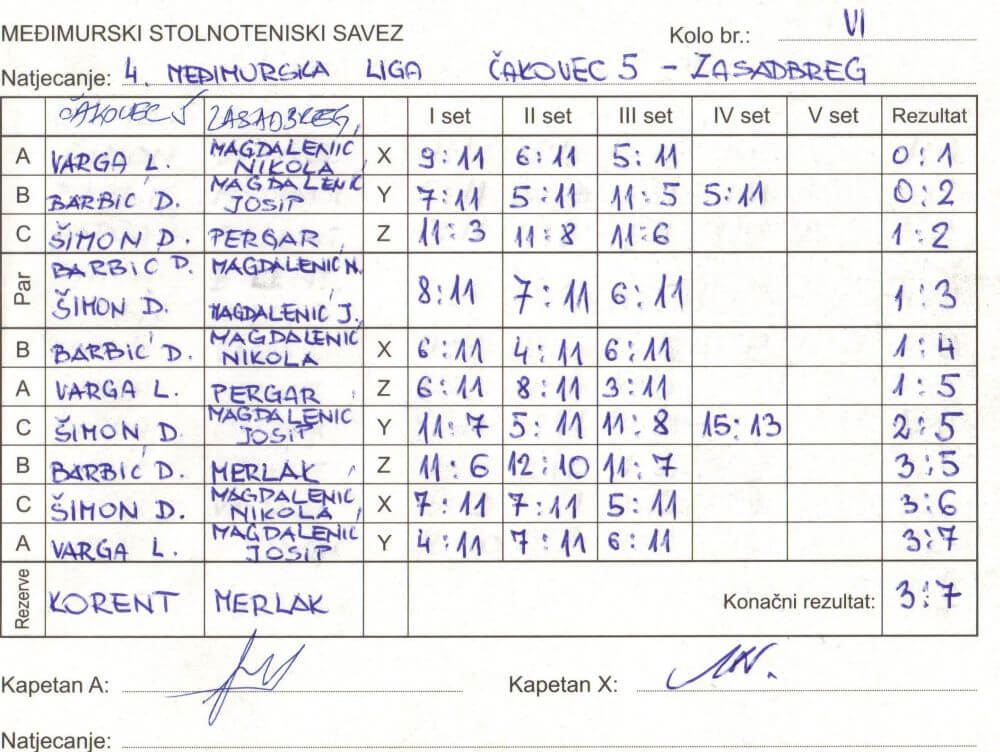 MEĐIMURSKI STOLNOTENISKI SAVEZ Kolo br.: VI
Natjecanje: 4. MEĐIMURSKA LIGA ČAKOVEC 5 - ZASADBREG
ČAKOVEC 5 ZASADBREG I set II set III set IV set V set Rezultat
A VARGA L. MAGDALENIĆ NIKOLA X 9:11 6:11 5:11 0:1
B BARBIĆ D. MAGDALENIĆ JOSIP Y 7:11 5:11 11:5 5:11 0:2
C ŠIMON D. PERGAR Z 11:3 11:8 11:6 1:2
Par BARBIĆ D. MAGDALENIĆ N.
ŠIMON D. MAGDALENIĆ J. 8:11 7:11 6:11 1:3
B BARBIĆ D. MAGDALENIĆ NIKOLA X 6:11 4:11 6:11 1:4
A VARGA L. PERGAR Z 6:11 8:11 3:11 1:5
C ŠIMON D. MAGDALENIĆ JOSIP Y 11:7 5:11 11:8 15:13 2:5
B BARBIĆ D. MERLAK Z 11:6 12:10 11:7 3:5
C ŠIMON D. MAGDALENIĆ NIKOLA X 7:11 7:11 5:11 3:6
A VARGA L. MAGDALENIĆ JOSIP Y 4:11 7:11 6:11 3:7
Rezerve KORENT MERLAK Konačni rezultat: 3:7
Kapetan A: Kapetan X:
Natjecanje: